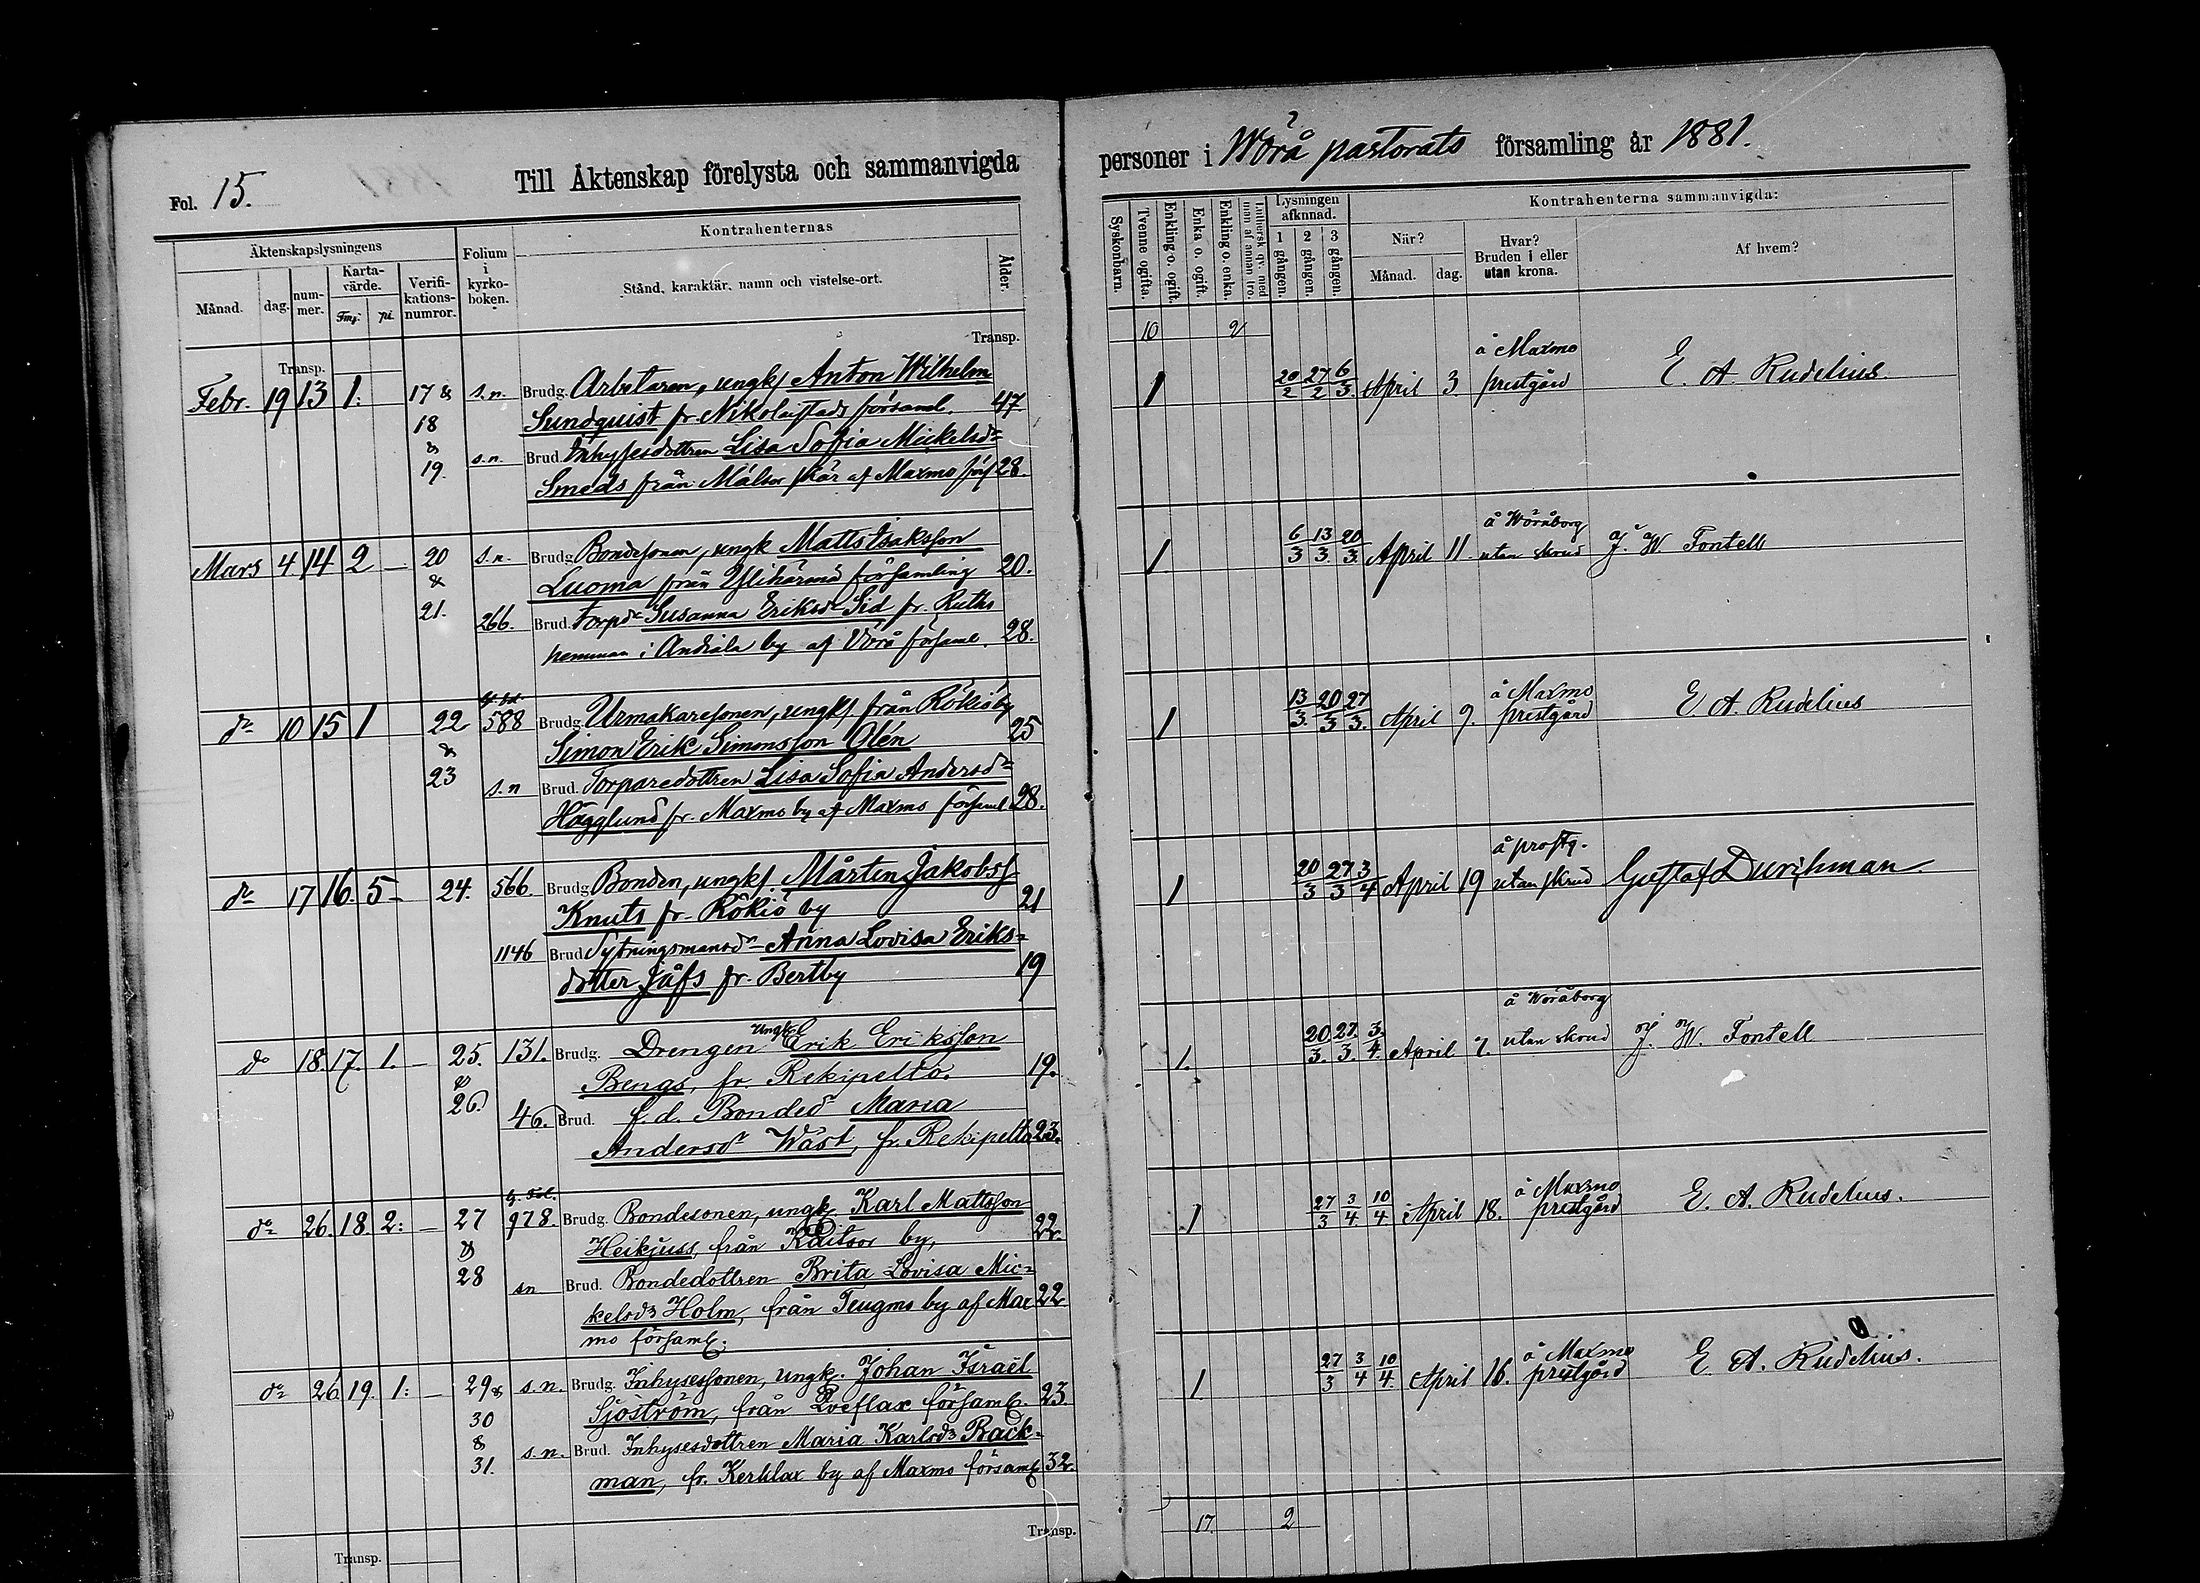 Fol. 15.
Till Äktenskap förelysta och sammanvigda
personer i Wörå pastorats församling år 1881.
Äktenskapslysningens
Månad.
dag.
num-
mer.
Karta-
värde.
Fmg:
pi
Verifi-
kations-
numror.
Folium
i
kyrko-
boken.
Kontrahenternas
Stånd, karaktär, namn och vistelse-ort.
Ålder.
Syskonbarn.
Tvenne ogifta.
Enkling o. ogift.
Enka o. ogift.
Enkling o. enka.
Luthersk qv. med
man af annan tro.
Lysningen
afknnad.
1 gången.
2 gången.
3 gången.
Kontrahenterna sammanvigda:
När?
Månad.
dag.
Hvar?
Bruden i eller
utan krona.
Af hvem?
Transp.
Transp.
10 2
Febr. 19 13 1: 17 & s.n. Brudg. Arbetaren, ungk. Anton Wilhelm
18 Sundquist fr Nikolaistads församl. 47
&
19. s.n. Brud. Inhysesdottren Lisa Sofia Mickelsdr
Smeds från Mälsor skär af Maxmo förs 28.
1 20/2 27/2 6/3. April 3. å Maxmo
prestgård E. A. Rudelius.
Mars 4 14 2 — 20 s.n. Brudg. Bondesonen, ungk Matts Isaksson
& Luoma från Ylihärmä församling 20.
21. 266. Brud. Torpdr Susanna Eriksdr Sid fr. Ruths
hemman i Andiala by af Vörå församl. 28.
1. 6/3 13/3. 20/3. April 11. å Wöråborg
utan skrud J. W. Fontell
do 10 15 1 22 588 Brudg. Urmakaresonen, ungk. från Rökiö by
& Simon Erik Simonsson Olén 25
23 s.n Brud. Torparedottren Lisa Sofia Andersdr
Hägglund fr. Maxmo by af Maxmo församl 28.
1 13/3. 20/3 27/3. April 9. å Maxmo
prestgård E. A. Rudelius
do 17 16. 5 — 24. 566. Brudg. Bonden, ungk. Mårten Jakobss
Knuts fr. Rökiö by 21
1146 Brud. Sytningsmansdr Anna Lovisa Eriks-
dotter Jåfs fr. Bertby 19
1 20/3 27/3 3/4 April 19 å prostg.
utan skrud Gustaf Durchman
do 18. 17. 1. — 25. 131. Brudg. Drengen ungk Erik Eriksson
& Bengs, fr. Rekipelto. 19.
26. 46. Brud. f.d. Bondedr Maria
Andersdr Wäst, fr. Rekipelto 23.
1. 20/3. 27/3. 3/4. April 7. å Wöråborg
utan skrud J. W. Fontell
do 26. 18. 2: — 27 978. Brudg. Bondesonen, ungk. Karl Mattsson
& Heikjuss, från Kaitsor by, 22.
28 sn Brud. Bondedottren Brita Lovisa Mic-
kelsdr Holm, från Teugmo by af Max 22
mo församl.
1 27/3 3/4 10/4 April 18. å Maxmo
prestgård E. A. Rudelius.
do 26 19. 1: — 29 & s.n. Brudg. Inhysessonen, ungk. Johan Israël
30 Sjöström, från Qveflax församl. 23.
&
31. s.n. Brud. Inhysesdottren Maria Karlsdr Back-
man, fr. Kerklax by af Maxmo församl 32.
1 27/3 3/4 10/4. April 16. å Maxmo
prestgård E. A. Rudelius.
Transp.
Transp.
17. 2